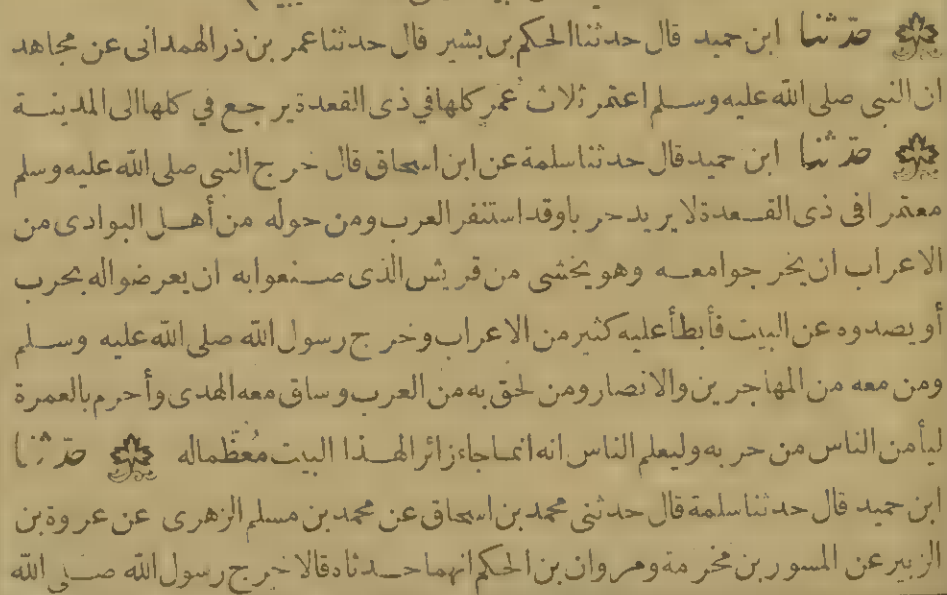 حدثنا ابن حميد قال حدثنا الحكم بن بشير قال حدثنا عمر بن ذر الهمدانى عن مجاهد
ان النبى صلى الله عليه وسلم اعتمر ثلاث عُمَر كلها فى ذى القعدة يرجع في كلها الى المدينة
حدثنا ابن حميد قال حدثنا سلمة عن ابن اسحاق قال خرج النبى صلى الله عليه وسلم
معتمرا فى ذى القعدة لا يريد حربا وقد استنفر العرب ومن حوله من أهل البوادى من
الاعراب ان يخرجوا معه وهو يخشى من قريش الذى صنعوا به ان يعرضوا له بحرب
أو يصدوه عن البيت فأبطأ عليه كثير من الاعراب وخرج رسول الله صلى الله عليه وسلم
ومن معه من المهاجرين والانصار ومن لحق به من العرب وساق معه الهدى وأحرم بالعمرة
ليأمن الناس من حربه وليعلم الناس انه انما جاء زائرا لهذا البيت مُعظّما له حدثنا
ابن حميد قال حدثنا سلمة قال حدثنى محمد بن اسحاق عن محمد بن مسلم الزهرى عن عروة بن
الزبير عن المسور بن مخرمة ومروان بن الحكم انهما حدثاه قالا خرج رسول الله صلى الله